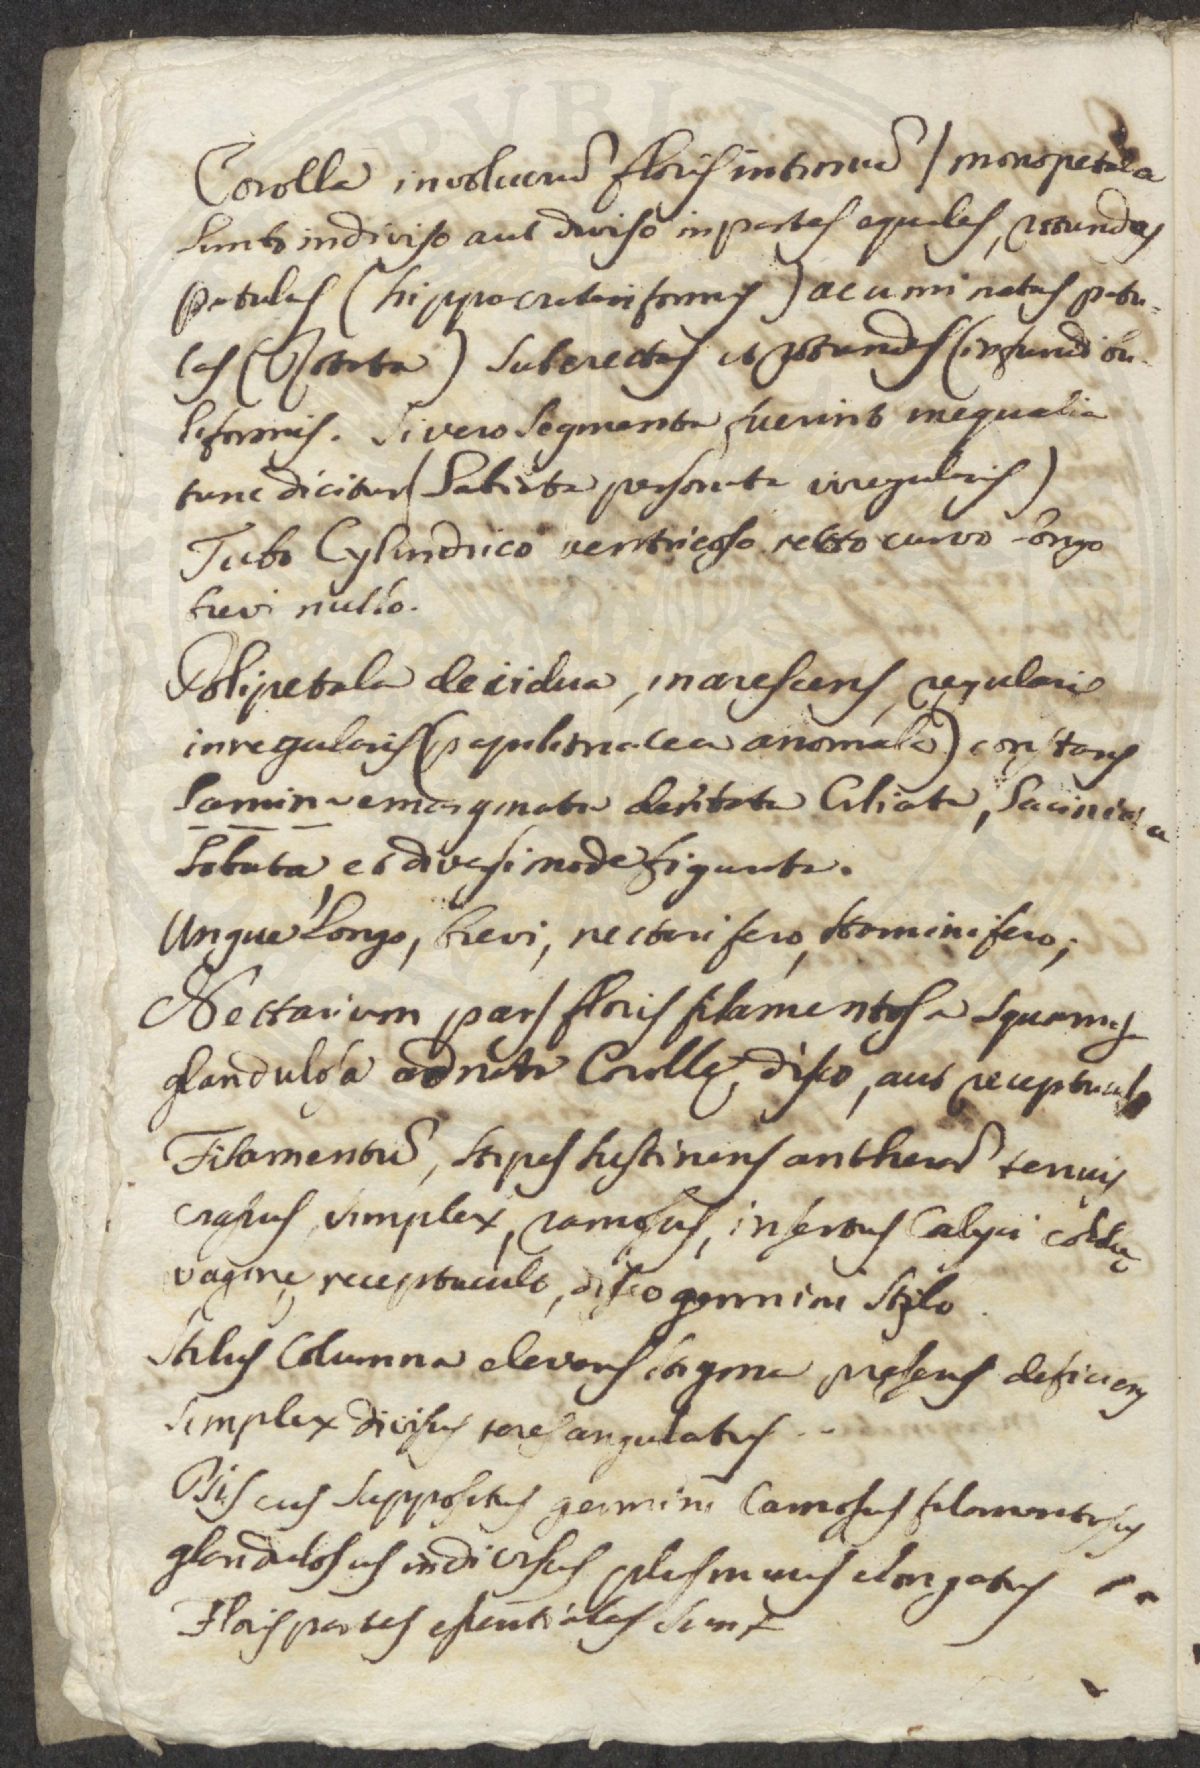 Corolla involucrū floris internū / monopetala
Limbo indiviso aut diviso in partes equales, rotundas
patulas (hippocrateriformis) acuminatas patu-
las (Rotata) suberectas et rotundas (infundibu-
liformis. Si vero segmenta fuerint inequalia
tunc dicitur (Labiata personata irregularis)
Tubo Cylindrico ventricoso recto curvo longo
brevi nullo.
Polipetala decidua, marescens, regularis
inregularis (papilionacea anomala) constans
Lamina emarginata dentata Ciliata, Laciniata
Lobata, et diversimode figurata.
Ungue Longo, brevi, nectarifero, staminifero;
Nectarium pars floris filamentosa squamosa
glandulosa adnata Corollę, disco, aut receptaculo
Filamentū, stipes sustinens antherā tenuis
crassus, simplex, ramosus, insertus Calyci corollę
vaginę receptaculo, disco germini stylo.
Stilus Columna elevans stigma, pręsens deficiens
simplex divisus teres angulatus --
Discus suppositus germini Carnosus filamentosus
glandulosus indivisus plus minus elongatus
Floris partes essentiales sunt